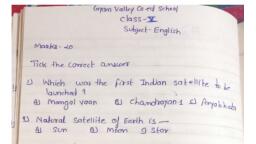 Gyan Valley Co-ed School
Class - V
Subject - English
Marks - 20
Tick the correct answer
1) Which was the first Indian satellite to be
launched ?
a) Mangal yaan b) Chandrayan 1 c) Aryabhata
2) Natural satellite of Earth is —
a) Sun b) Moon c) Star